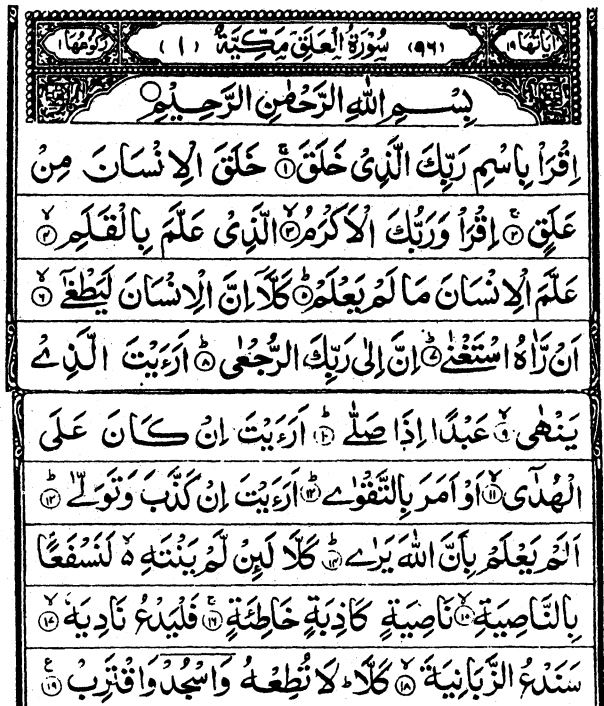 اٰیاتها ۱۹ (۹۶) سُوْرَةُ الْعَلَقِ مَكِّيَّةٌ (۱) رکوعها ۱
بِسْمِ اللّٰهِ الرَّحْمٰنِ الرَّحِيْمِ
اِقْرَاْ بِاسْمِ رَبِّكَ الَّذِيْ خَلَقَ ۱ خَلَقَ الْاِنْسَانَ مِنْ
عَلَقٍ ۲ اِقْرَاْ وَرَبُّكَ الْاَكْرَمُ ۳ الَّذِيْ عَلَّمَ بِالْقَلَمِ ۴
عَلَّمَ الْاِنْسَانَ مَا لَمْ يَعْلَمْ ۵ كَلَّاۤ اِنَّ الْاِنْسَانَ لَيَطْغٰۤى ۶
اَنْ رَّاٰهُ اسْتَغْنٰى ۷ اِنَّ اِلٰى رَبِّكَ الرُّجْعٰى ۸ اَرَءَيْتَ الَّذِيْ
يَنْهٰى ۹ عَبْدًا اِذَا صَلّٰى ۱۰ اَرَءَيْتَ اِنْ كَانَ عَلَى
الْهُدٰٓى ۱۱ اَوْ اَمَرَ بِالتَّقْوٰى ۱۲ اَرَءَيْتَ اِنْ كَذَّبَ وَتَوَلّٰى ۱۳
اَلَمْ يَعْلَمْ بِاَنَّ اللّٰهَ يَرٰى ۱۴ كَلَّا لَئِنْ لَّمْ يَنْتَهِ ۵ لَنَسْفَعًۢا
بِالنَّاصِيَةِ ۱۵ نَاصِيَةٍ كَاذِبَةٍ خَاطِئَةٍ ۱۶ فَلْيَدْعُ نَادِيَهٗ ۱۷
سَنَدْعُ الزَّبَانِيَةَ ۱۸ كَلَّا ط لَا تُطِعْهُ وَاسْجُدْ وَاقْتَرِبْ ۱۹